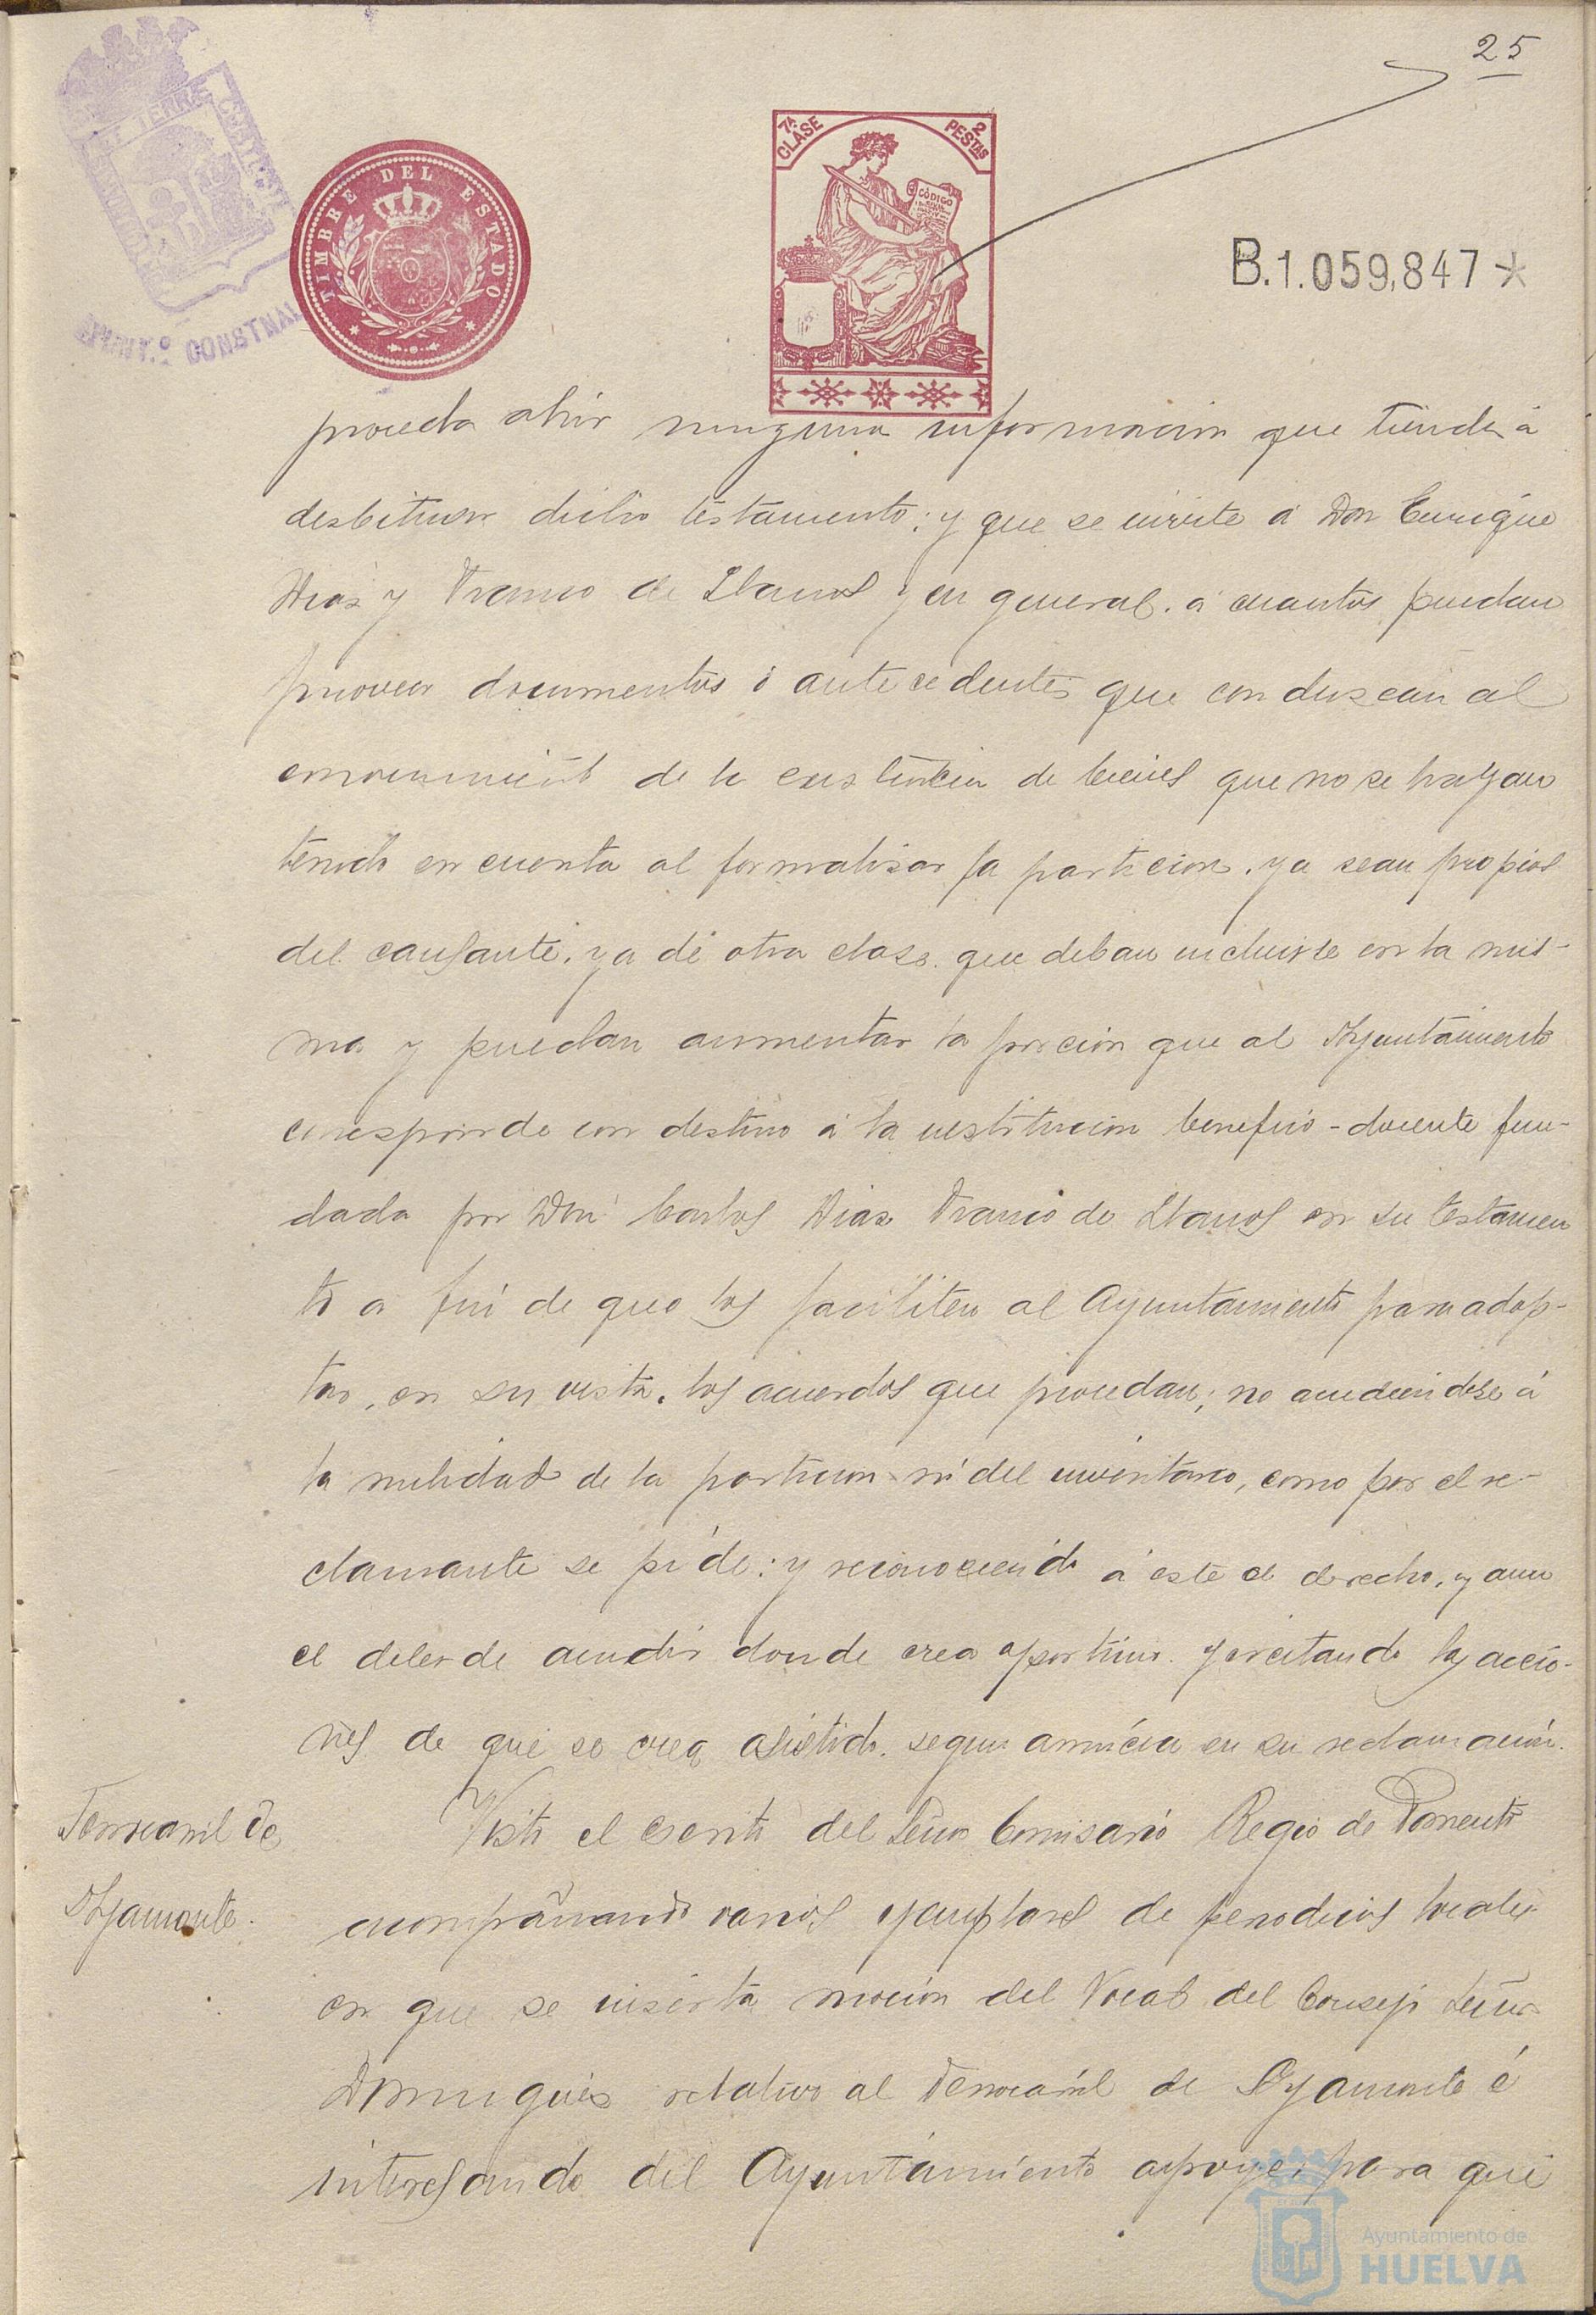 25
TIMBRE DEL ESTADO
7ª CLASE
2 PESTAS
CÓDIGO
B.1.059,847 *
AYUNT.º CONSTNAL
proceda abrir ninguna informacion que tienda á
desvirtuar dicho testamento; y que se invite á Don Enrique
Dias y Franco de Llanos y en general. á cuantos puedan
proveer documentos ó antecedentes que conduzcan al
conocimiento de la existencia de bienes que no se hayan
tenido en cuenta al formalisar la particion. ya sean propios
del causante. ya de otra clase. que deban incluirse en la mis-
ma y puedan aumentar la porcion que al Ayuntamiento
corresponde con destino á la institucion benefico-docente fun-
dada por Don Carlos Dias Franco de Llanos en su testamen
to a fin de que los faciliten al Ayuntamiento para adop-
tar, en su vista. los acuerdos que procedan; no accediendose á
la nulidad de la particion ni del inventario, como por el re-
clamante se pide: y reconociendo á este el derecho. y aun
el deber de acudir donde crea oportuno. ejercitando las accio-
nes de que se crea asistido. segun anuncia en su reclamación.
Ferrocarril de
Ayamonte.
Visto el escrito del Señor Comisario Regio de Fomento
acompañando varios ejemplares de periodicos locales
en que se inserta mocion del Vocal del Consejo Señor
Dominguez relativo al Ferrocarril de Ayamonte é
interesando del Ayuntamiento apoye, para que
Ayuntamiento de
HUELVA